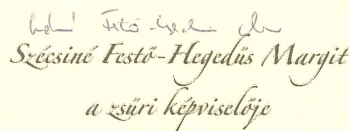 Szécsiné Festő-Hegedüs Margit
a zsüri képviselője